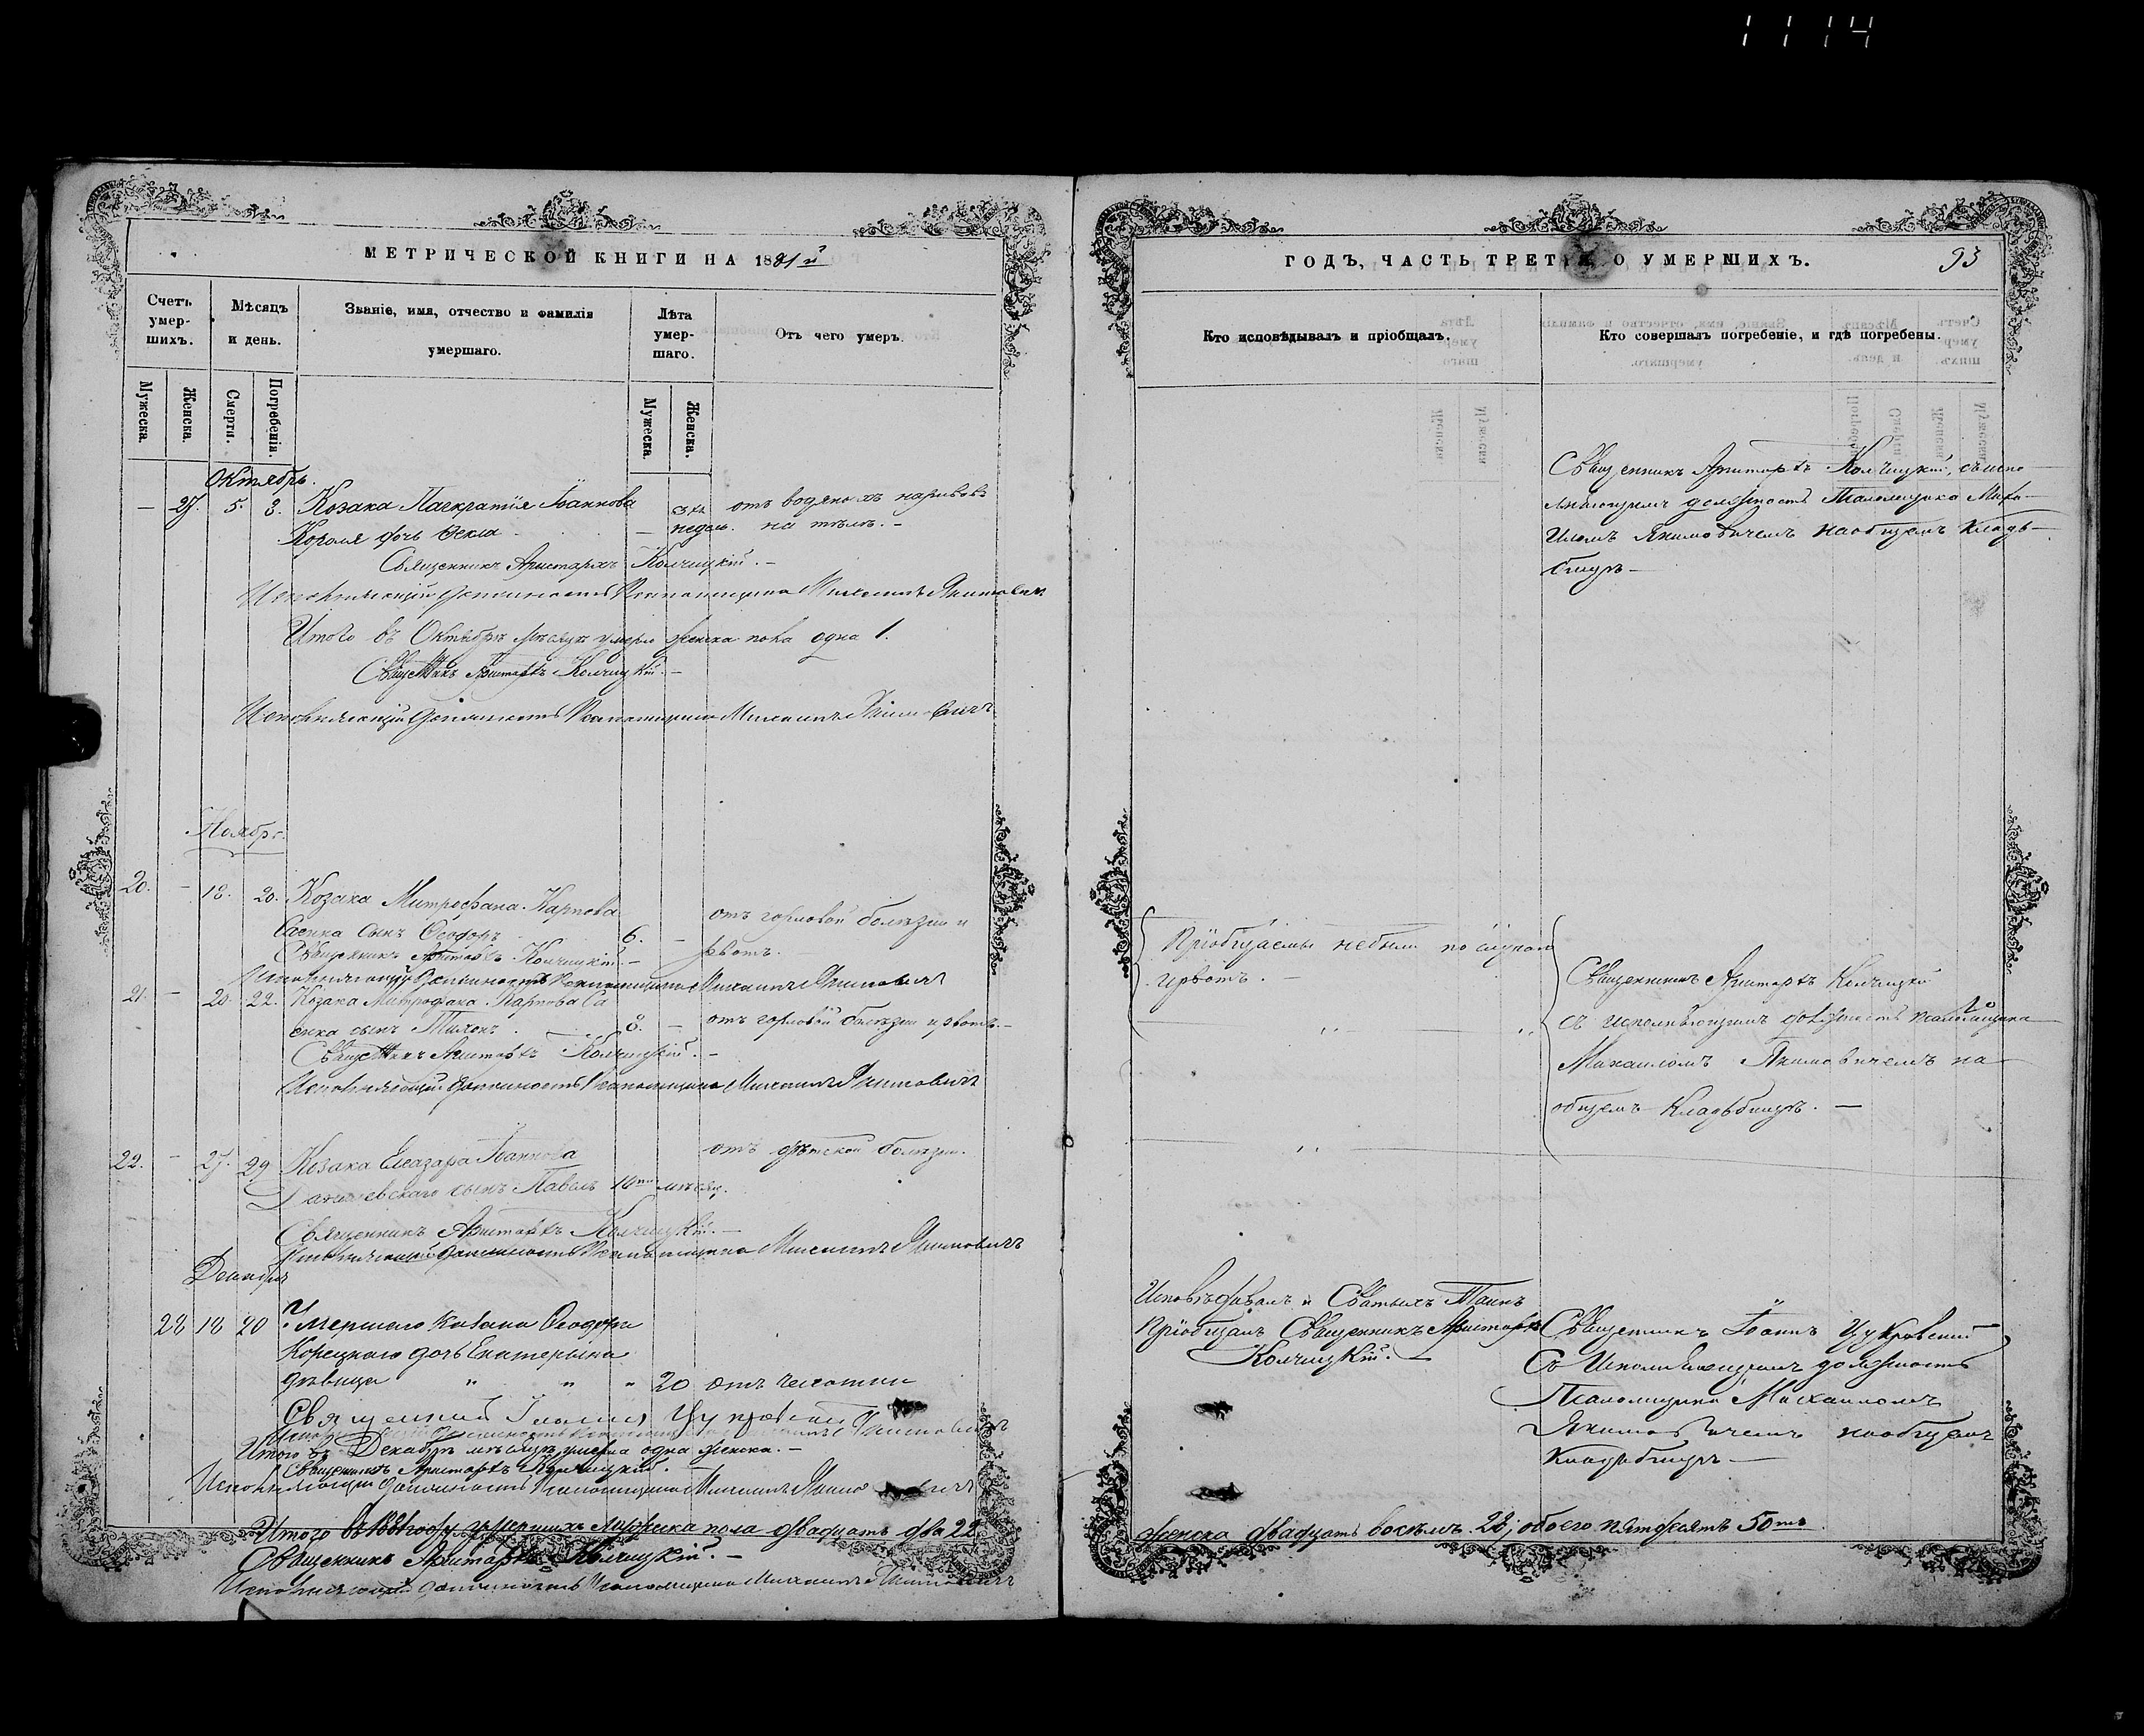 1114
МЕТРИЧЕСКОЙ КНИГИ НА 1881й
Счетъ умер-шихъ.
Мѣсяцъ и день.
Званіе, имя, отчество и фамилія умершаго.
Лѣта умер-шаго.
Отъ чего умеръ.
Мужеска.
Женска.
Смерти.
Погребенія.
Мужеска.
Женска.
Октябрь.
— 27. 5. 8. Козака Панкратія Іоаннова
недѣль. отъ водяныхъ нарывовъ
Короля дочь Текла на тѣлѣ. —
Священникъ Аристархъ Колчицкій. —
Исполняющій должность Псаломщика Михаилъ Якимовичъ
Итого въ Октябрѣ мѣсяцѣ умерло женска пола одна 1.
Священникъ Аристархъ Колчицкій. —
Исполняющій должность Псаломщика Михаилъ Якимовичъ
Ноябрь.
20. — 18. 20. Козака Митрофана Карпова
Саенка сынъ Ѳеодоръ 6. — отъ горловой болѣзни и рвотъ. —
Священникъ Аристархъ Колчицкій. —
Исполняющій должность Псаломщика Михаилъ Якимовичъ
21. — 20. 22. Козака Митрофана Карпова Са
енка сынъ Тихонъ. 8. — отъ горловой болѣзни и рвотъ. —
Священникъ Аристархъ Колчицкій. —
Исполняющій должность Псаломщика Михаилъ Якимовичъ
22. — 27. 29 Козака Елеазара Іоаннова отъ дѣтской болѣзни.
сынъ Павелъ 10ти мѣсяц.
Священникъ Аристархъ Колчицкій. —
Исполняющій должность Псаломщика Михаилъ Якимовичъ
Декабрь
28 18 20 Умершаго Козака Ѳеодора
Корецкаго дочь Екатерина
дѣвица " " " 20 отъ чахотки
Священникъ Іоаннъ
Якимовичъ
Итого въ Декабрѣ мѣсяцѣ умерла одна женска. —
Священникъ Аристархъ Колчицкій. —
Исполняющій должность Псаломщика Михаилъ Якимовичъ
Итого въ 1881 году умершихъ мужеска пола двадцать два 22
Священникъ Аристархъ Колчицкій. —
Исполняющій должность Псаломщика Михаилъ Якимовичъ
ГОДЪ, ЧАСТЬ ТРЕТІЯ, О УМЕРШИХЪ.
93
Кто исповѣдывалъ и пріобщалъ.
Кто совершалъ погребеніе, и гдѣ погребены.
Священникъ Аристархъ Колчицкій, съ испо
лняющимъ должность Псаломщика Миха-
иломъ Якимовичемъ на общемъ кладь-
бищѣ —
Пріобщаемы небыли по случаю
рвотъ. —
Священникъ Аристархъ Колчицкій
съ исполняющимъ должность псаломщика
Михаиломъ Якимовичемъ на
общемъ кладьбищѣ. —
Исповѣдывалъ и Святыхъ Таинъ
Пріобщалъ Священникъ Аристархъ
Колчицкій. —
Священникъ Іоаннъ
Съ Исполняющимъ должность
Псаломщика Михаиломъ
Якимовичемъ на общемъ
Кладьбищѣ —
женска двадцать восемь 28, обоего пятдесятъ 50тъ.